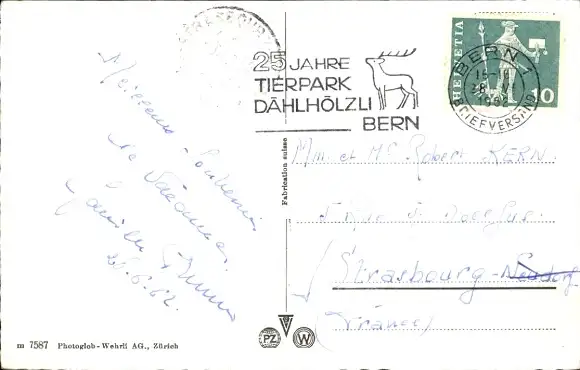 25 JAHRE
TIERPARK
DÄHLHÖLZLI
BERN
HELVETIA
10
BERN 1
BRIEFVERSAND
Meilleurs
de Vacances
Famille
28.6.62.
Fabrication suisse
Mme et Mr Robert KERN
Strasbourg - Neudorf
(France)
PZ
W
m 7587 Photoglob-Wehrli AG., Zürich